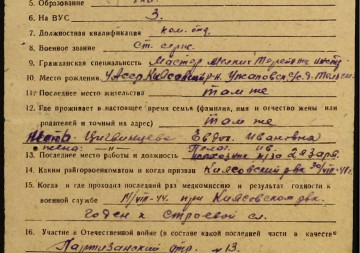 5. Образование
6. На ВУС 3.
7. Должностная квалификация ком. отд.
8. Военное звание Ст. серж.
9. Гражданская специальность Мастер
10. Место рождения УАССР Киясовский р-н
11. Последнее место жительства там же
12. Где проживает в настоящее время семья (фамилия, имя и отчество жены или
родителей и точный их адрес) там же
Евдок. Ивановна
жена: —"—
13. Последнее место работы и должность
14. Каким райгорвоенкоматом и когда призван Киясовский рвк 30/VIII-41 г.
15. Когда и где проходил последний раз медкомиссию и результат годности к
военной службе IV/VIII-44. при Киясовском рвк.
Годен к строевой сл.
16. Участие в Отечественной войне (в составе какой последней части в качестве
Партизанский отр. №13.